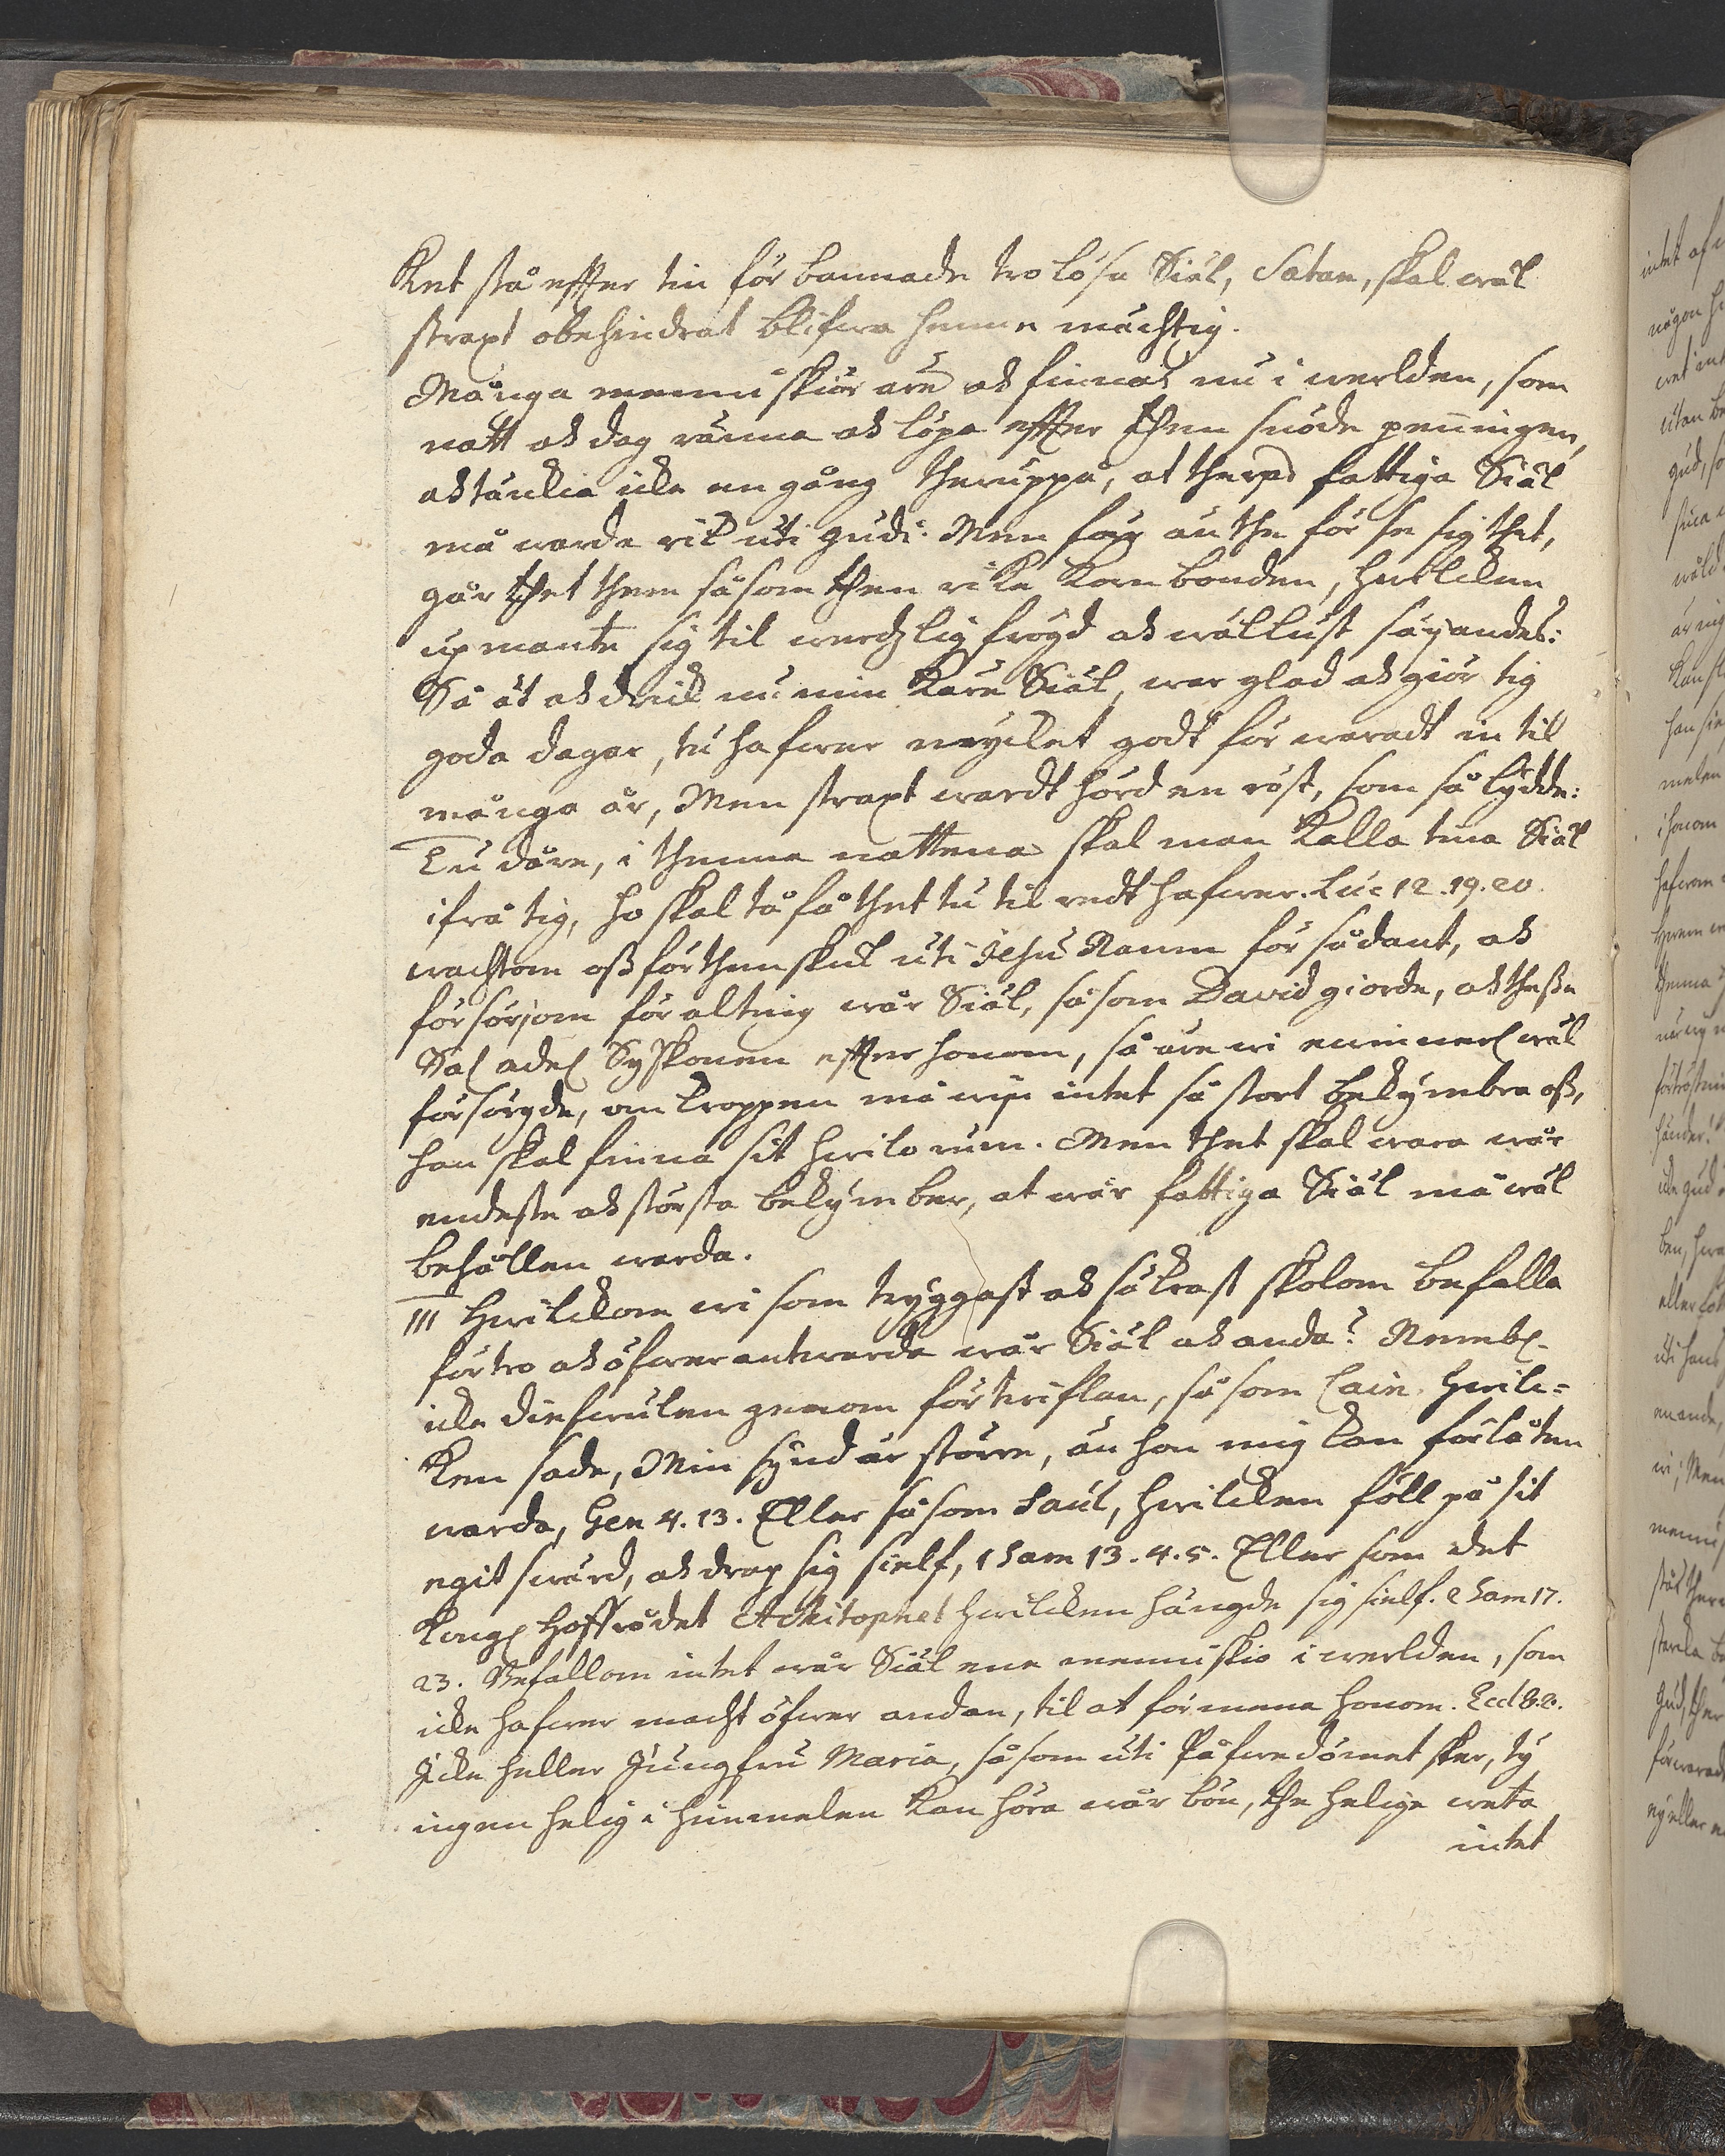 ket stå effter tin förbannade trolösa Siäl, Satan, skal wäl
straxt obehindrat blifwa henne mächtig.
Många menniskior äre ok finnas nu i werlden, som
natt ok dag ränna ok löpa effter then snöde penningen,
ok tänkia icke en gång theruppå, at theras fattiga Siäl
må warda rik uti gudi. Men för än the för se sig thet,
går thet them såsom then rike Korn bonden, hwilcken
upmante sig til werdzlig frögd ok wällust säyandes:
Så ät ok drick nu min kiäre Siäl, war glad ok giör tig
goda dagar, tu hafwer mycket godt förwaradt in til
många år, Men straxt wardt hörd en röst, som så lydde:
Tu dåre, i thenne nattena skal man kalla tina Siäl
ifrå tig, ho skal tå få thet tu til redt hafwer. Luc 12.19.20.
wachtom oss förthenskul uti Jesu Namn för sådant, ok
försörjom för alting wår Siäl, såsom David giorde, ok thesse
Sal. adel. Syskonen effter honom, så äre wi ewinnerl. wäl
försörgde, om kroppen må wij intet så stort bekymbra oss,
han skal finna sit hwilo rum. Men thet skal wara wår
endeste ok största bekymber, at wår fattiga Siäl må wäl
behållen warda.
III Hwilckom wi som tryggast ok säkrast skolom befalla
förtro ok öfwerantwarda wår Siäl ok anda? Nembl.
icke diefwulen genom förtwiflan, såsom Cain. hwilc-
ken sade, Min synd är större, än hon mig kan förlåten
warda, Gen 4.13. Eller såsom Saul, hwilcken föll på sit
egit swärd, ok drap sig sielf, 1 Sam 13.4.5. Eller som det
Kongl. Hoffrådet Achitophel hwilcken hängde sig sielf. 2 Sam 17.
23. Befallom intet wår Siäl ene menniskio i werlden, som
icke hafwer macht öfwer andan, til at förmena honom. Eccl 8.8.
Icke heller Jungfru Maria, såsom uti Påfwedömet sker, ty
ingen helig i himmelen kan höra wår bön, the helige weta
intet